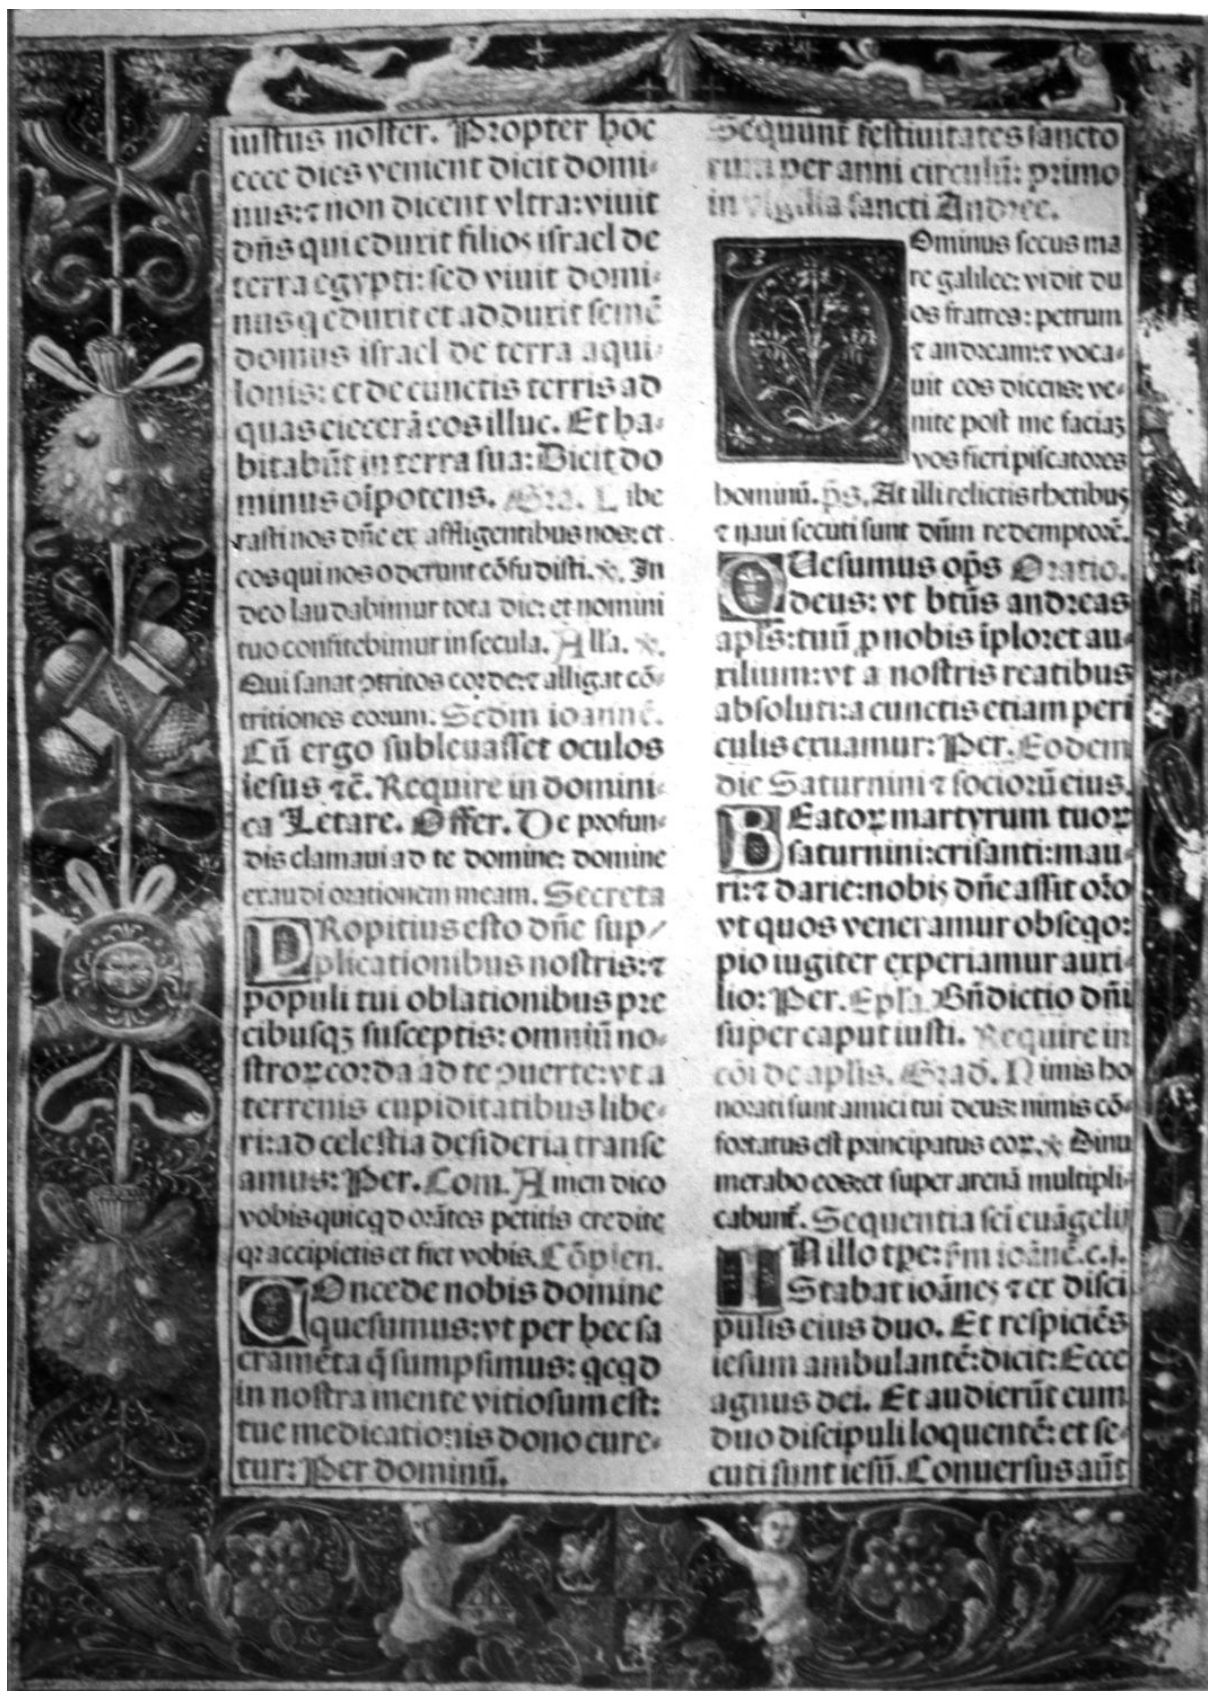 iustus noster. Propter hoc
ecce dies venient dicit domi-
nus: ⁊ non dicent vltra: viuit
dñs qui eduxit filios israel de
terra egypti: sed viuit domi-
nus q eduxit et adduxit semē
domus israel de terra aqui-
lonis: et de cunctis terris ad
quas eiecerā eos illuc. Et ha-
bitabūt in terra sua: Dicit do
minus oīpotens. Gra. Libe
rasti nos dñe ex affligentibus nos: et
eos qui nos oderunt cōfudisti. ℣. In
deo laudabimur tota die: et nomini
tuo confitebimur in secula. Alla. ℣.
Qui sanat ꝯtritos corde: ⁊ alligat cō-
tritiones eorum. Scdm ioannē.
Cū ergo subleuasset oculos
iesus ⁊c̄. Require in domini-
ca Letare. Offer. De profun-
dis clamaui ad te domine: domine
exaudi orationem meam. Secreta
PRopitius esto dñe sup/
plicationibus nostris: ⁊
populi tui oblationibus pre
cibusqꝫ susceptis: omniū no-
stroꝝ corda ad te ꝯuerte: vt a
terrenis cupiditatibus libe-
ri: ad celestia desideria transe
amus: Per. Com. Amen dico
vobis quicqd orātes petitis credite
qꝛ accipietis et fiet vobis. Cōplen.
COncede nobis domine
quesumus: vt per hec sa
cramēta q̄ sumpsimus: qcqd
in nostra mente vitiosum est:
tue medicationis dono cure-
tur: Per dominū.
Sequunt̄ festiuitates sancto
rum per anni circulū: primo
in vigilia sancti Andree.
DOminus secus ma
re galilee: vidit du
os fratres: petrum
⁊ andream: ⁊ voca-
uit eos dicens: ve-
nite post me faciaꝫ
vos fieri piscatores
hominū. p̄s. At illi relictis rhetibus
⁊ naui secuti sunt dñm redemptorē.
QUesumus op̄s Oratio.
deus: vt btūs andreas
apl̄s: tuū ꝓ nobis īploret au-
xilium: vt a nostris reatibus
absoluti: a cunctis etiam peri
culis eruamur: Per. Eodem
die Saturnini ⁊ socioꝝ eius.
BEatoꝝ martyrum tuoꝝ
saturnini: crisanti: mau-
ri: ⁊ darie: nobis dñe assit oro
vt quos veneramur obseqo:
pio iugiter experiamur auxi-
lio: Per. Epla. Bñdictio dñi
super caput iusti. Require in
cōi de aplis. Grad. Nimis ho
norati sunt amici tui deus: nimis cō-
fortatus est principatus eoꝝ. ℣. Dinu
merabo eos: et super arenā multipli-
cabunt̄. Sequentia sci euāgelij
IN illo tpe: s̄m ioānē. c.j.
Stabat ioānes ⁊ ex disci
pulis eius duo. Et respiciēs
iesum ambulantē: dicit: Ecce
agnus dei. Et audierūt eum
duo discipuli loquentē: et se-
cuti sunt iesū. Conuersus aūt